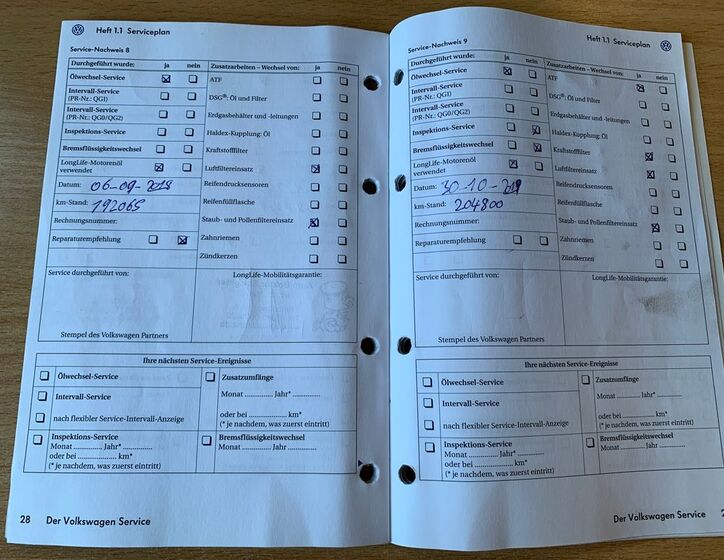 Heft 1.1 Serviceplan
Service-Nachweis 8
Durchgeführt wurde: ja nein
Ölwechsel-Service
Intervall-Service
(PR-Nr.: QG1)
Intervall-Service
(PR-Nr.: QG0/QG2)
Inspektions-Service
Bremsflüssigkeitswechsel
LongLife-Motorenöl
verwendet
Datum: 06-09-2018
km-Stand: 192065
Rechnungsnummer:
Reparaturempfehlung
Zusatzarbeiten – Wechsel von: ja nein
ATF
DSG®: Öl und Filter
Erdgasbehälter und -leitungen
Haldex-Kupplung: Öl
Kraftstofffilter
Luftfiltereinsatz
Reifendrucksensoren
Reifenfüllflasche
Staub- und Pollenfiltereinsatz
Zahnriemen
Zündkerzen
Service durchgeführt von:
LongLife-Mobilitätsgarantie:
Stempel des Volkswagen Partners
Ihre nächsten Service-Ereignisse
Ölwechsel-Service
Intervall-Service
nach flexibler Service-Intervall-Anzeige
Zusatzumfänge
Monat .............. Jahr* ..............
oder bei .............. km*
(* je nachdem, was zuerst eintritt)
Inspektions-Service
Monat .............. Jahr* ..............
oder bei .............. km*
(* je nachdem, was zuerst eintritt)
Bremsflüssigkeitswechsel
Monat .............. Jahr* ..............
28 Der Volkswagen Service
Heft 1.1 Serviceplan
Service-Nachweis 9
Durchgeführt wurde: ja nein
Ölwechsel-Service
Intervall-Service
(PR-Nr.: QG1)
Intervall-Service
(PR-Nr.: QG0/QG2)
Inspektions-Service
Bremsflüssigkeitswechsel
LongLife-Motorenöl
verwendet
Datum: 30-10-2019
km-Stand: 204800
Rechnungsnummer:
Reparaturempfehlung
Zusatzarbeiten – Wechsel von: ja nein
ATF
DSG®: Öl und Filter
Erdgasbehälter und -leitungen
Haldex-Kupplung: Öl
Kraftstofffilter
Luftfiltereinsatz
Reifendrucksensoren
Reifenfüllflasche
Staub- und Pollenfiltereinsatz
Zahnriemen
Zündkerzen
Service durchgeführt von:
LongLife-Mobilitätsgarantie:
Stempel des Volkswagen Partners
Ihre nächsten Service-Ereignisse
Ölwechsel-Service
Intervall-Service
nach flexibler Service-Intervall-Anzeige
Zusatzumfänge
Monat .............. Jahr* ..............
oder bei .............. km*
(* je nachdem, was zuerst eintritt)
Inspektions-Service
Monat .............. Jahr* ..............
oder bei .............. km*
(* je nachdem, was zuerst eintritt)
Bremsflüssigkeitswechsel
Monat .............. Jahr* ..............
Der Volkswagen Service